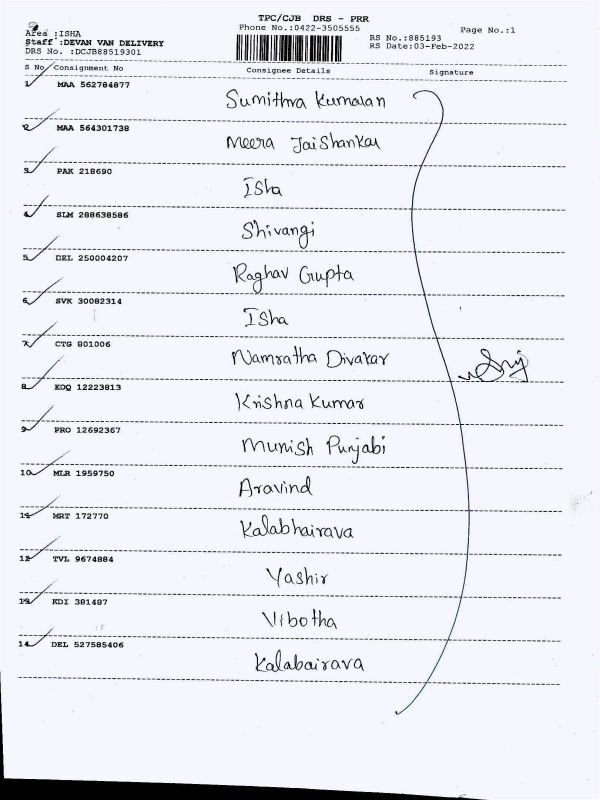 TPC/CJB DRS - PRR
Phone No.:0422-3505555
Page No.:1
Area :ISHA
Staff :DEVAN VAN DELIVERY
DRS No. :DCJB88519301
RS No.:885193
RS Date:03-Feb-2022
S No Consignment No Consignee Details Signature
1 MAA 562784877
Sumithra Kumalan
2 MAA 564301738
Meera Jaishankar
3 PAK 218690
Isha
4 SLM 288638586
Shivangi
5 DEL 250004207
Raghav Gupta
6 SVK 30082314
Isha
7 CTG 801006
Namratha Divakar
8 EDQ 12223813
Krishna Kumar
9 PRO 12692367
Munish Punjabi
10 MLR 1959750
Aravind
11 MRT 172770
Kalabhairava
12 TVL 9674884
Yashir
13 KDI 381487
Vibotha
14 DEL 527585406
Kalabairava